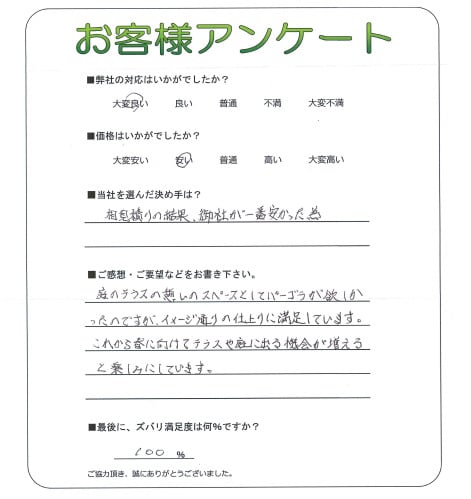 お客様アンケート
■弊社の対応はいかがでしたか?
大変良い 良い 普通 不満 大変不満
■価格はいかがでしたか?
大変安い 安い 普通 高い 大変高い
■当社を選んだ決め手は?
相見積りの結果、御社が一番安かった為
■ご感想・ご要望などをお書き下さい。
庭のテラスの癒しのスペースとしてパーゴラが欲しか
ったのですが、イメージ通りの仕上りに満足しています。
これから春に向けてテラスや庭に出る機会が増える
と楽しみにしています。
■最後に、ズバリ満足度は何%ですか?
100 %
ご協力頂き、誠にありがとうございました。